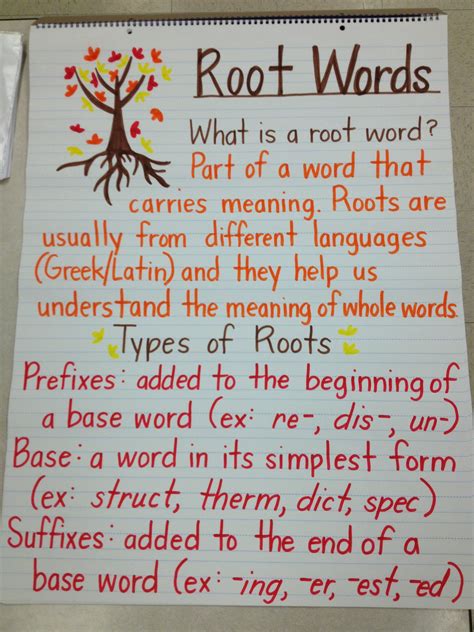 Root Words
What is a root word?
Part of a word that
carries meaning. Roots are
usually from different languages
(Greek/Latin) and they help us
understand the meaning of whole words.
Types of Roots
Prefixes: added to the beginning of
a base word (ex: re-, dis-, un-)
Base: a word in its simplest form
(ex: struct, therm, dict, spec)
Suffixes: added to the end of a
base word (ex: -ing, -er, -est, -ed)